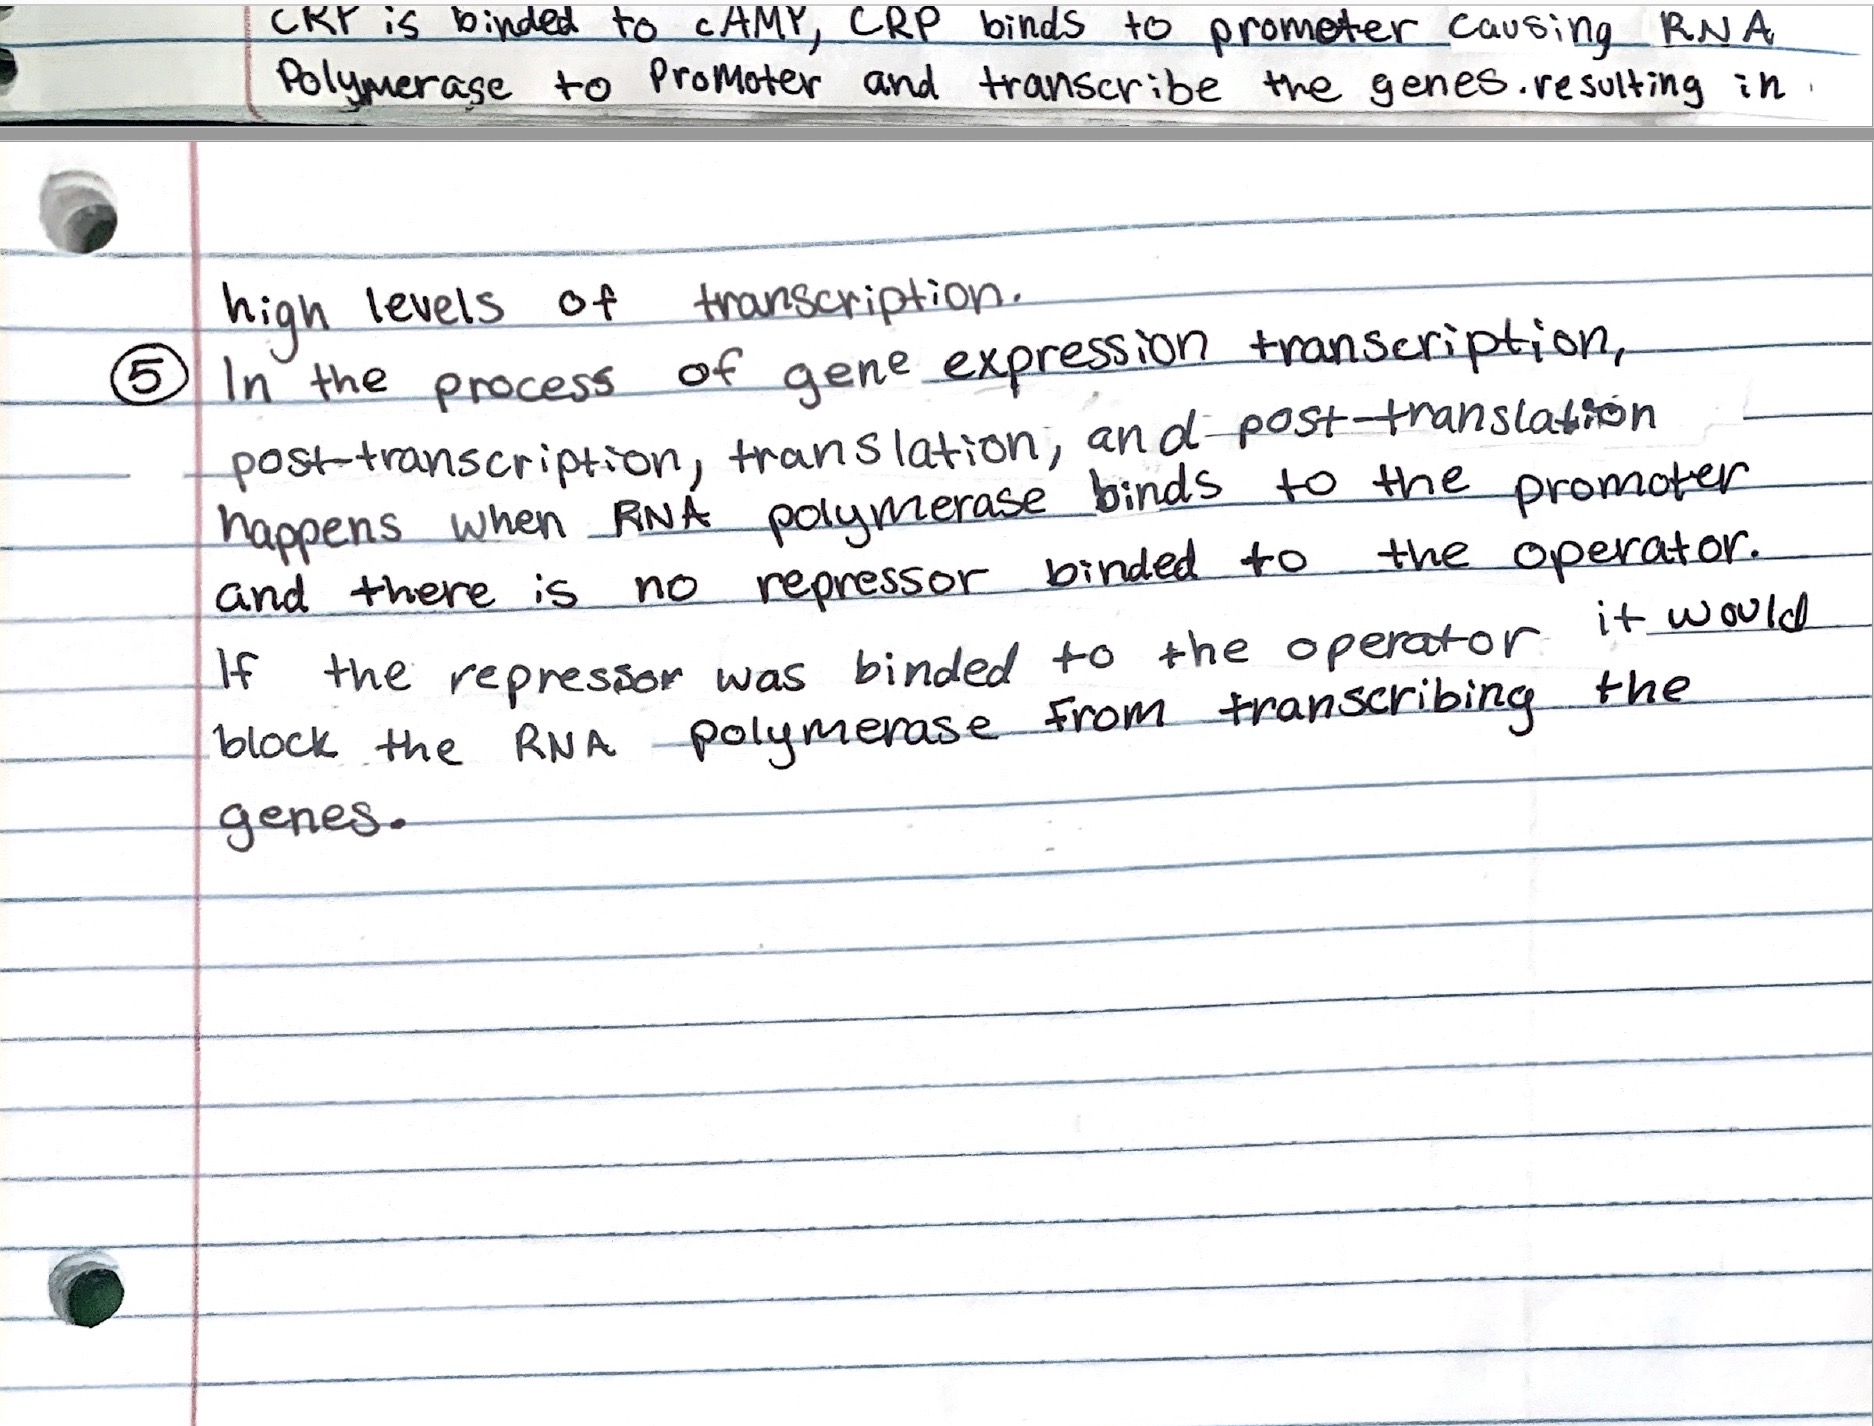 CRP is binded to cAMP, CRP binds to prometer causing RNA
Polymerase to Promoter and transcribe the genes. resulting in
high levels of transcription.
⑤ In the process of gene expression transcription,
post-transcription, translation, and post-translation
happens when RNA polymerase binds to the promoter
and there is no repressor binded to the operator.
If the repressor was binded to the operator it would
block the RNA polymerase from transcribing the
genes.